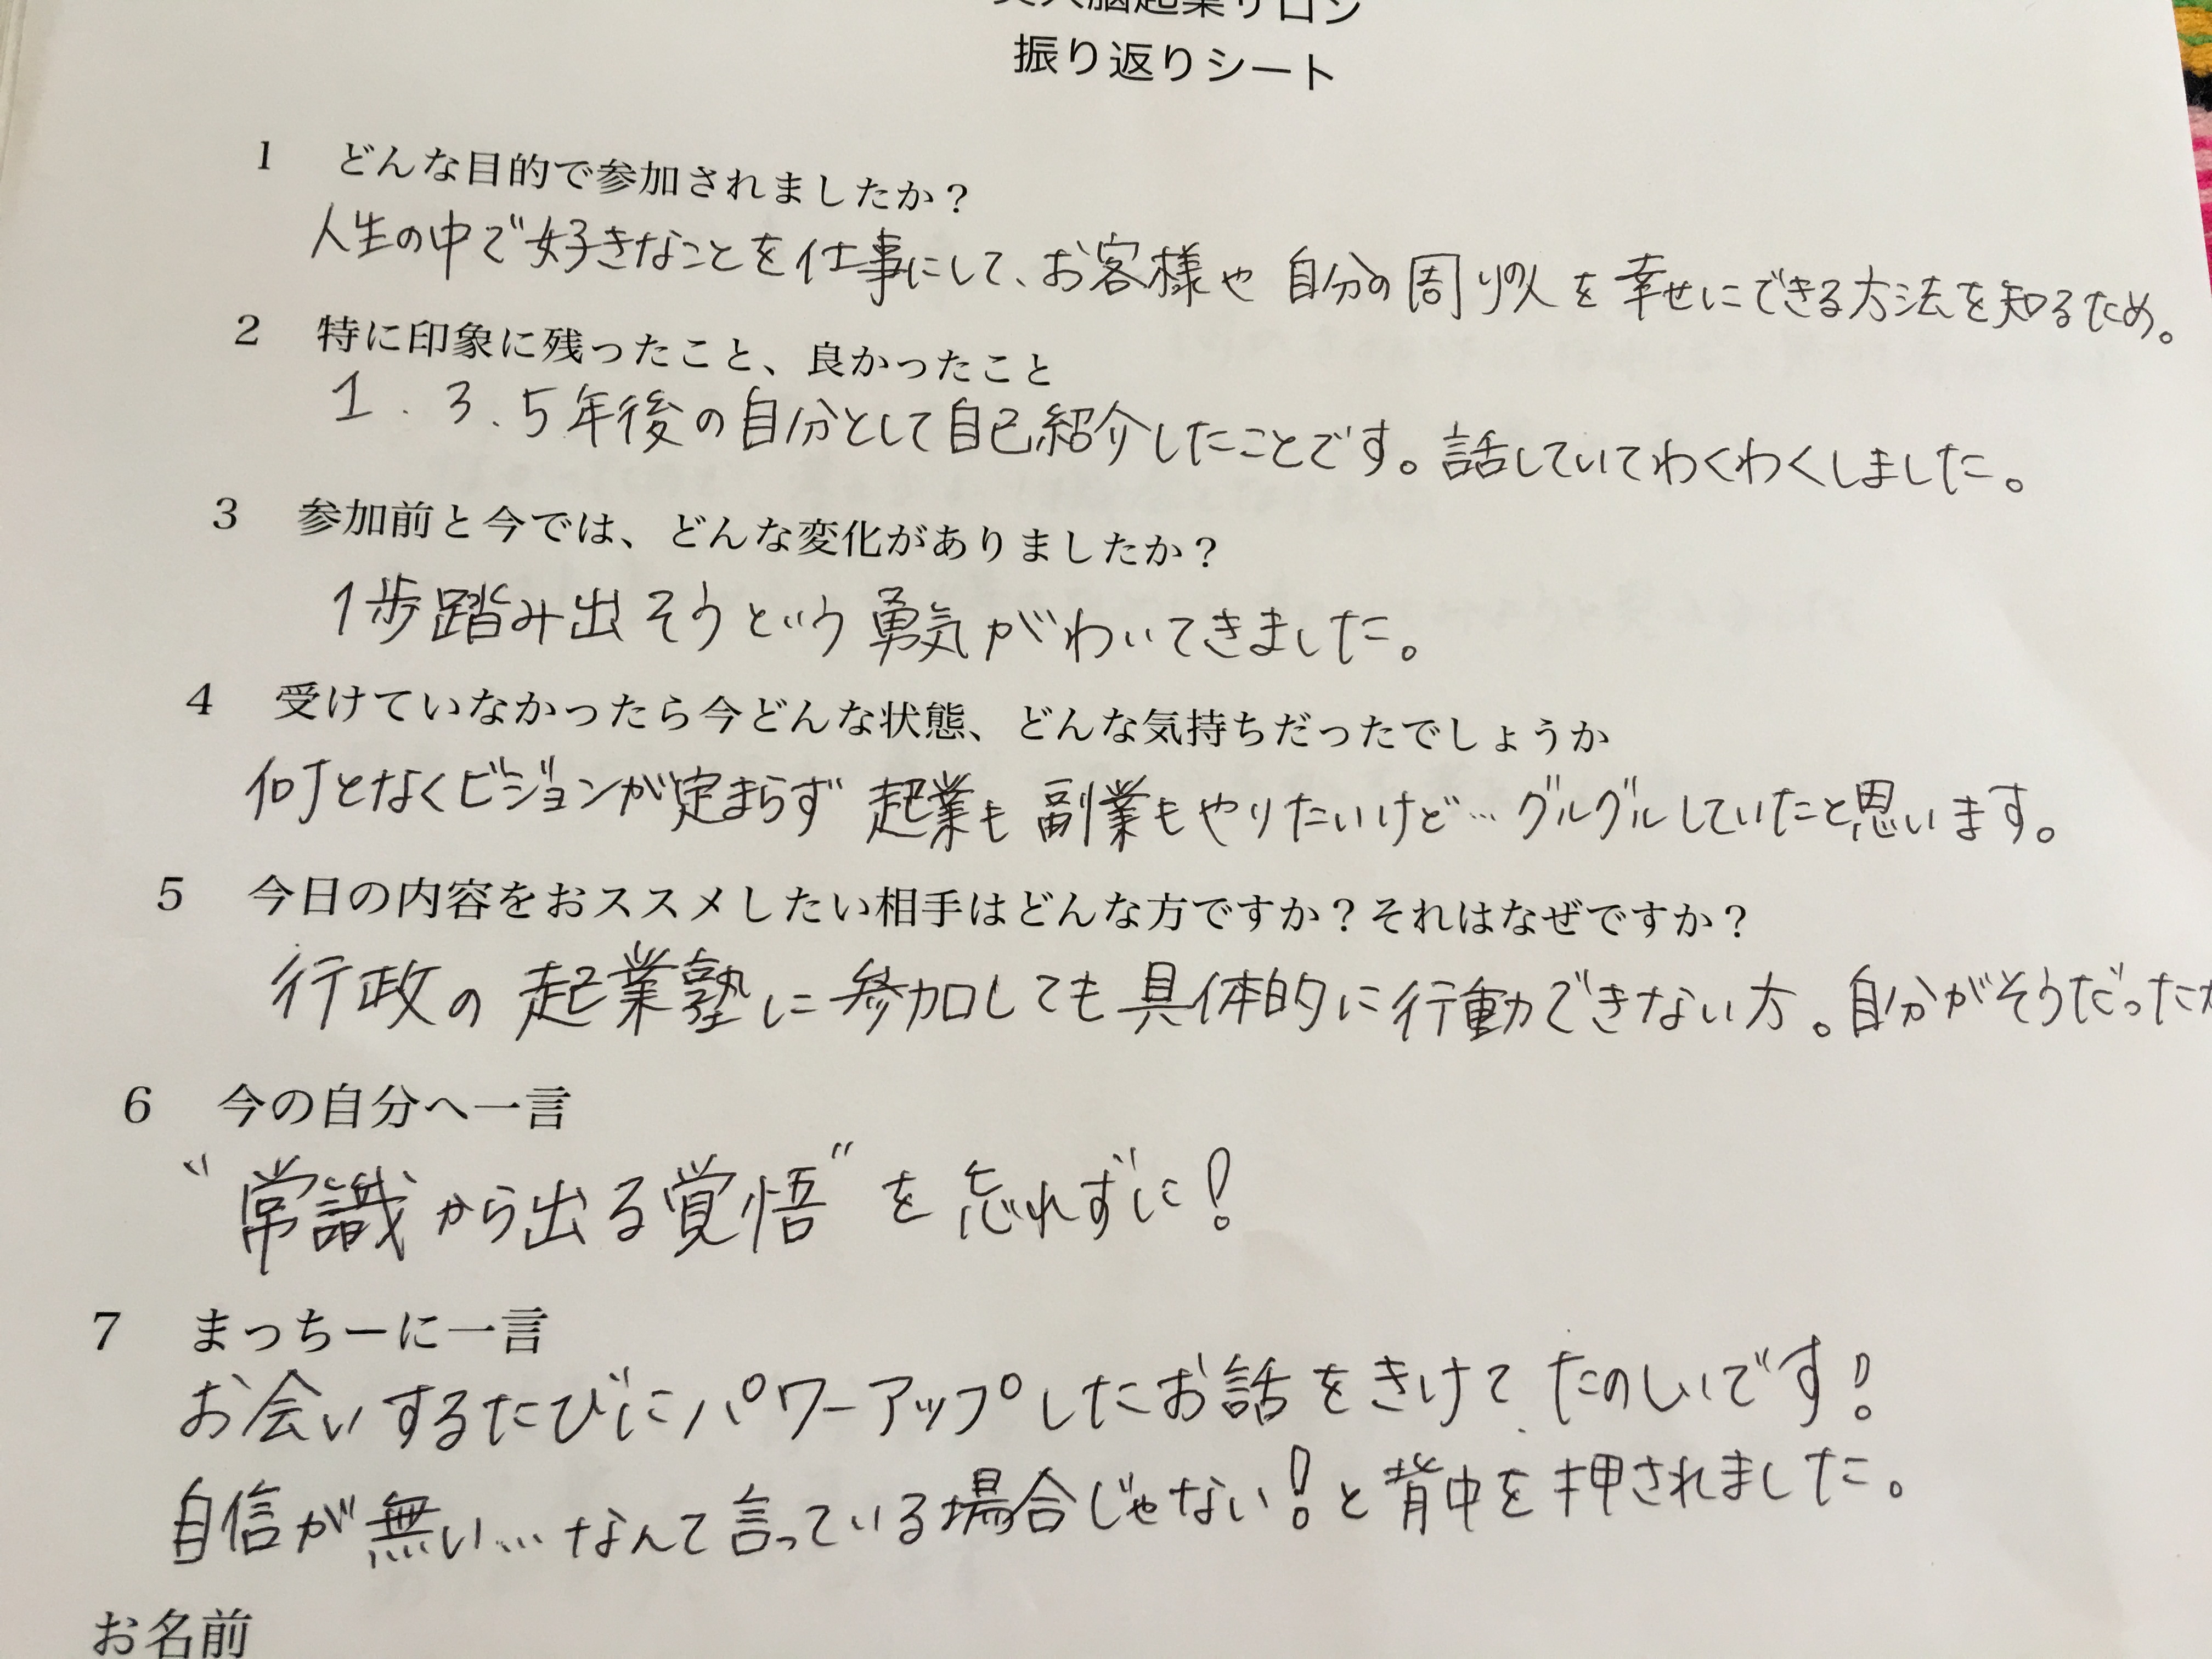 脳起業サロン
振り返りシート
1 どんな目的で参加されましたか?
人生の中で好きなことを仕事にして、お客様や自分の周りの人を幸せにできる方法を知るため。
2 特に印象に残ったこと、良かったこと
1.3.5年後の自分として自己紹介したことです。話していてわくわくしました。
3 参加前と今では、どんな変化がありましたか?
1歩踏み出そうという勇気がわいてきました。
4 受けていなかったら今どんな状態、どんな気持ちだったでしょうか
何となくビジョンが定まらず起業も副業もやりたいけど…グルグルしていたと思います。
5 今日の内容をおススメしたい相手はどんな方ですか?それはなぜですか?
行政の起業塾に参加しても具体的に行動できない方。自分がそうだった
6 今の自分へ一言
"常識から出る覚悟"を忘れずに!
7 まっちーに一言
お会いするたびにパワーアップしたお話をきけてたのしいです!
自信が無い…なんて言っている場合じゃない!と背中を押されました。
お名前